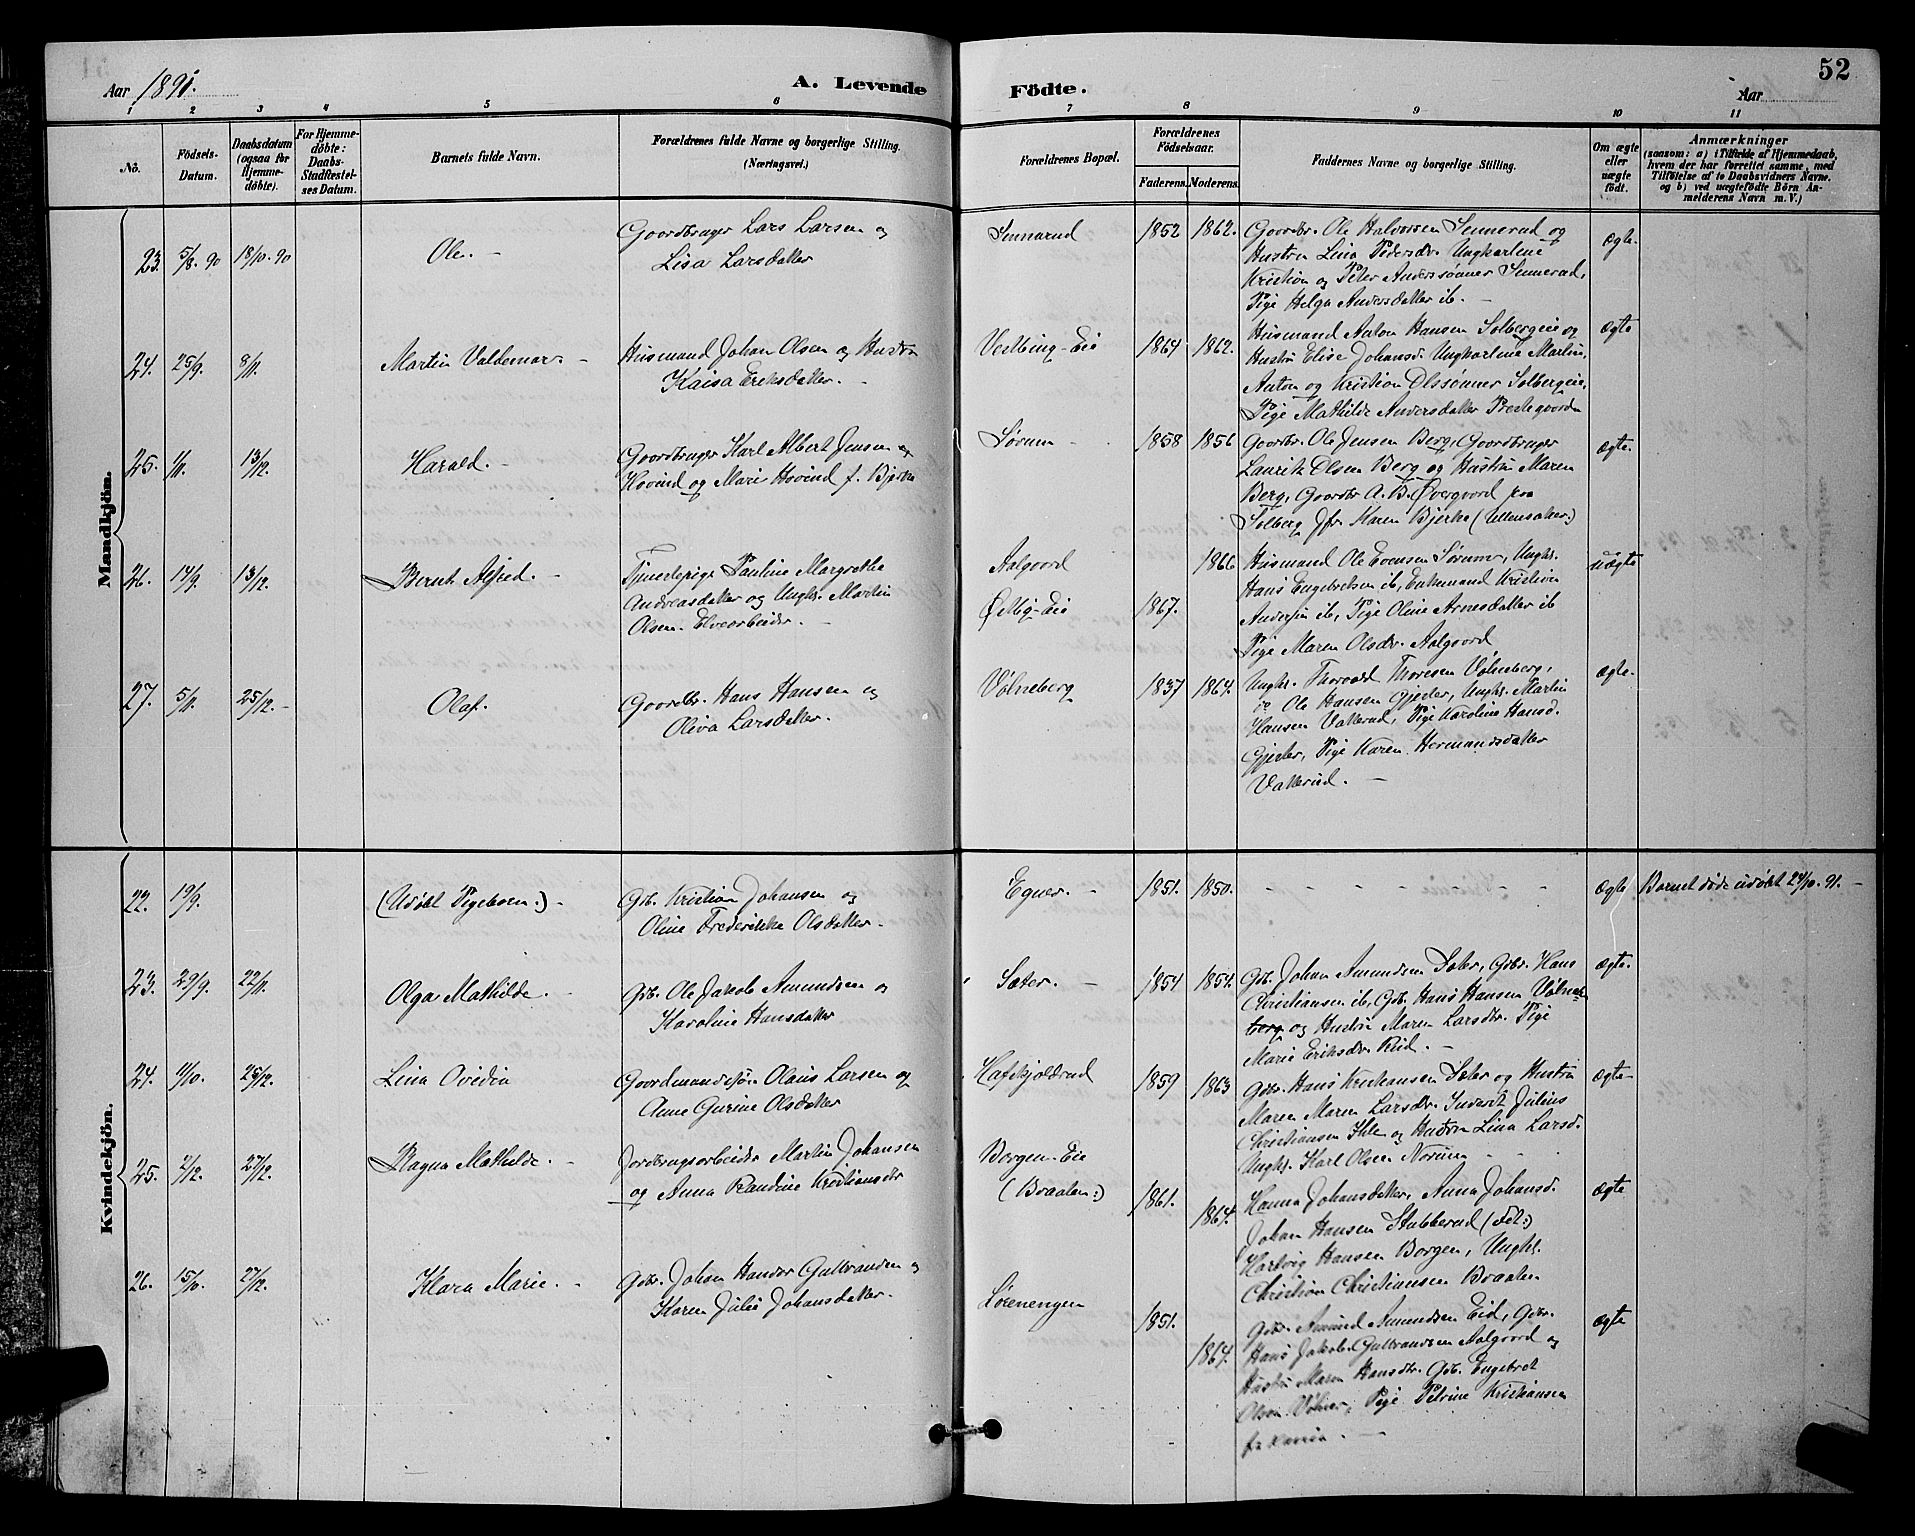 Aar 1891.
A. Levende
Födte.
Aar
52
1 2 3 4 5 6 7 8 9 10 11
No.
Födsels-Datum.
Daabsdatum (ogsaa for Hjemme-döbte).
For Hjemme-döbte: Daabs-Stadfæstel-ses Datum.
Barnets fulde Navn.
Forældrenes fulde Navne og borgerlige Stilling.
(Næringsvei.)
Forældrenes Bopæl.
Forældrenes Födselsaar.
Faderens. Moderens.
Faddernes Navne og borgerlige Stilling.
Om ægte eller uægte födt.
Anmærkninger
(saasom: a) i Tilfælde af Hjemmedaab,
hvem der har forrettet samme, med
Tilföielse af to Daabsvidners Navne,
og b) ved uægtefödte Börn An-
melderens Navn m. V.)
Mandkjön.
23. 5/8. 90 18/10. 90 Ole. -
Goordbruger Lars Larsen og
Lisa Larsdatter
Sennerud 1852 1862.
Goordbr. Ole Halvorsen Sennerud og
Hustru Lina Pedersdr. Ungkarlene
Kristian og Peter Anderssønner Sennerud,
Pige Helga Andersdatter ib. -
ægte.
24. 25/9. 9/11. Martin Valdemar. -
Husmand Johan Olsen og Hustru
Kaisa Eriksdatter. -
Vestbing-Eie 1864 1862.
Husmand Anton Hansen Solbergeie og
Hustru Elise Johansd. Ungkarlene Martin,
Anton og Kristian Olssønner Solbergeie,
Pige Mathilde Andersdatter Prestegoorden
ægte
25. 1/11. 13/12. Harald. -
Goordbruger Karl Albert Jensen
Hovind og Mari Hovind f. Bjerke
Sørum - 1858 1856
Goordbr. Ole Jensen Berg, Goordbruger
Laurits Olsen Berg og Hustru Maren
Berg, Goordbr A. B. Øvergoord paa
Solberg Jfr. Karen Bjerke (Ullensaker.)
ægte.
26. 14/9. 13/12. Bernt Alfred. -
Tjenestepige Pauline Margrethe
Andreasdatter og Ungk. Martin
Olsen. Elvearbeider. -
Aalgoord 1866
Østby-Eie 1867.
Husmand Ole Evensen Sørum, Ungk.
Hans Engebretsen ib, Enkemand Kristian
Andersen ib, Pige Oline Arnesdatter ib
Pige Maren Olsdr. Aalgoord
uægte
27. 5/11. 25/12. - Olaf.
Goordbr. Hans Hansen og
Oliva Larsdatter.
Volneberg 1837 1864.
Ungk. Thorvald Thoresen Volneberg,
Ole Hansen Gjester, Ungk. Martin
Hansen Vakkerud, Pige Karoline Hansd.
Gjester, Pige Karen Hermandsdatter
Vakkerud. -
ægte.
Kvindekjön.
22. 19/9. (Udöbt Pigebarn.) -
Gdb. Kristian Johansen og
Oline Frederikke Olsdatter -
Egner. - 1851. 1850. - - - - - - - -
ægte Barnet döde udöbt 24/10. 91. -
23. 29/9. 22/11. Olga Mathilde. -
Gdb. Ole Jakob Amundsen og
Karoline Hansdatter
Sæter. - 1854 1854.
Gdb. Johan Amundsen Sæter, Gdbr. Hans
Christiansen ib, Gdb. Hans Hansen Volne-
berg og Hustru Maren Larsdtr. Pige
Marie Eriksdr. Riid. -
ægte.
24. 4/10. 25/12. Lina Ovedia
Goordmandssøn Olaus Larsen og
Anne Gurine Olsdatter
Hafskjoldrud 1859 1863
Gdbr. Hans Kristiansen Sæter og Hustru
Maren Maren Larsdr. Inderst Julius
Christiansen Ihle og Hustru Lina Larsd.
Ungk. Karl Olsen Norum - - -
ægte -
25. 2/12. 27/12. Ragna Mathilde. -
Jordbrugsarbeider Martin Johansen
og Anna Randine Kristiansdtr
Borgen-Eie
(Braaten:) 1861. 1864.
Hanna Johansdatter, Anna Johansd.
Johan Hansen Stubberud
Hartvig Hansen Borgen, Ungk.
Christian Christiansen Braaten
ægte
26. 15/10. 27/12. Klara Marie. -
Gdbr. Johan Gulbrandsen og
Karen Julie Johansdatter. -
Lørenengen 1851. 1864.
Gdbr. Amund Amundsen Eid, Gdbr.
Hans Jakob Gulbrandsen Aalgoord og
Hustru Maren Hansdtr. Gdb. Engebret
Olsen Volner, Pige Petrine Kristiansen
ægte